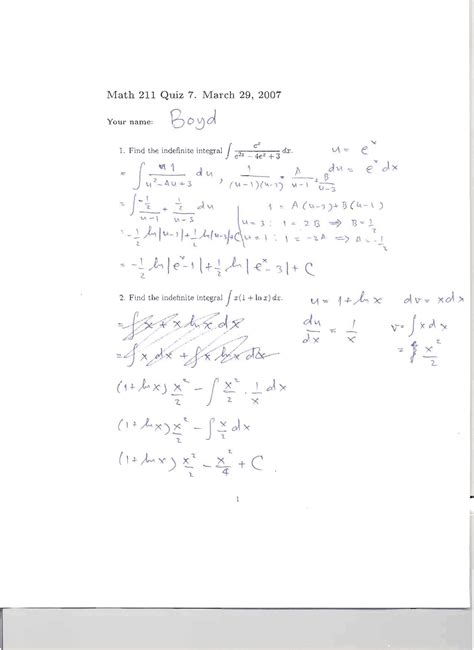 Math 211 Quiz 7. March 29, 2007
Your name: Boyd
1. Find the indefinite integral ∫ e^x/(e^{2x} − 4e^x + 3) dx. u = e^x
= ∫ 1/(u²−4u+3) du , du = e^x dx
= ∫ (−1/2)/(u−1) + (1/2)/(u−3) du 1 = A(u−3)+B(u−1)
u=3: 1 = 2B ⇒ B = 1/2
= −1/2 ln|u−1| + 1/2 ln|u−3| + C u=1: 1 = −2A ⇒ A = −1/2
= −1/2 ln|e^x−1| + 1/2 ln|e^x−3| + C
2. Find the indefinite integral ∫ x(1 + ln x) dx. u = 1+ln x dv = xdx
= ∫ x + x ln x dx du/dx = 1/x v = ∫ x dx
= ∫ x dx + ∫ x ln x dx = x²/2
(1+ln x) x²/2 − ∫ x²/2 · 1/x dx
(1+ln x) x²/2 − ∫ x/2 dx
(1+ln x) x²/2 − x²/4 + C
1